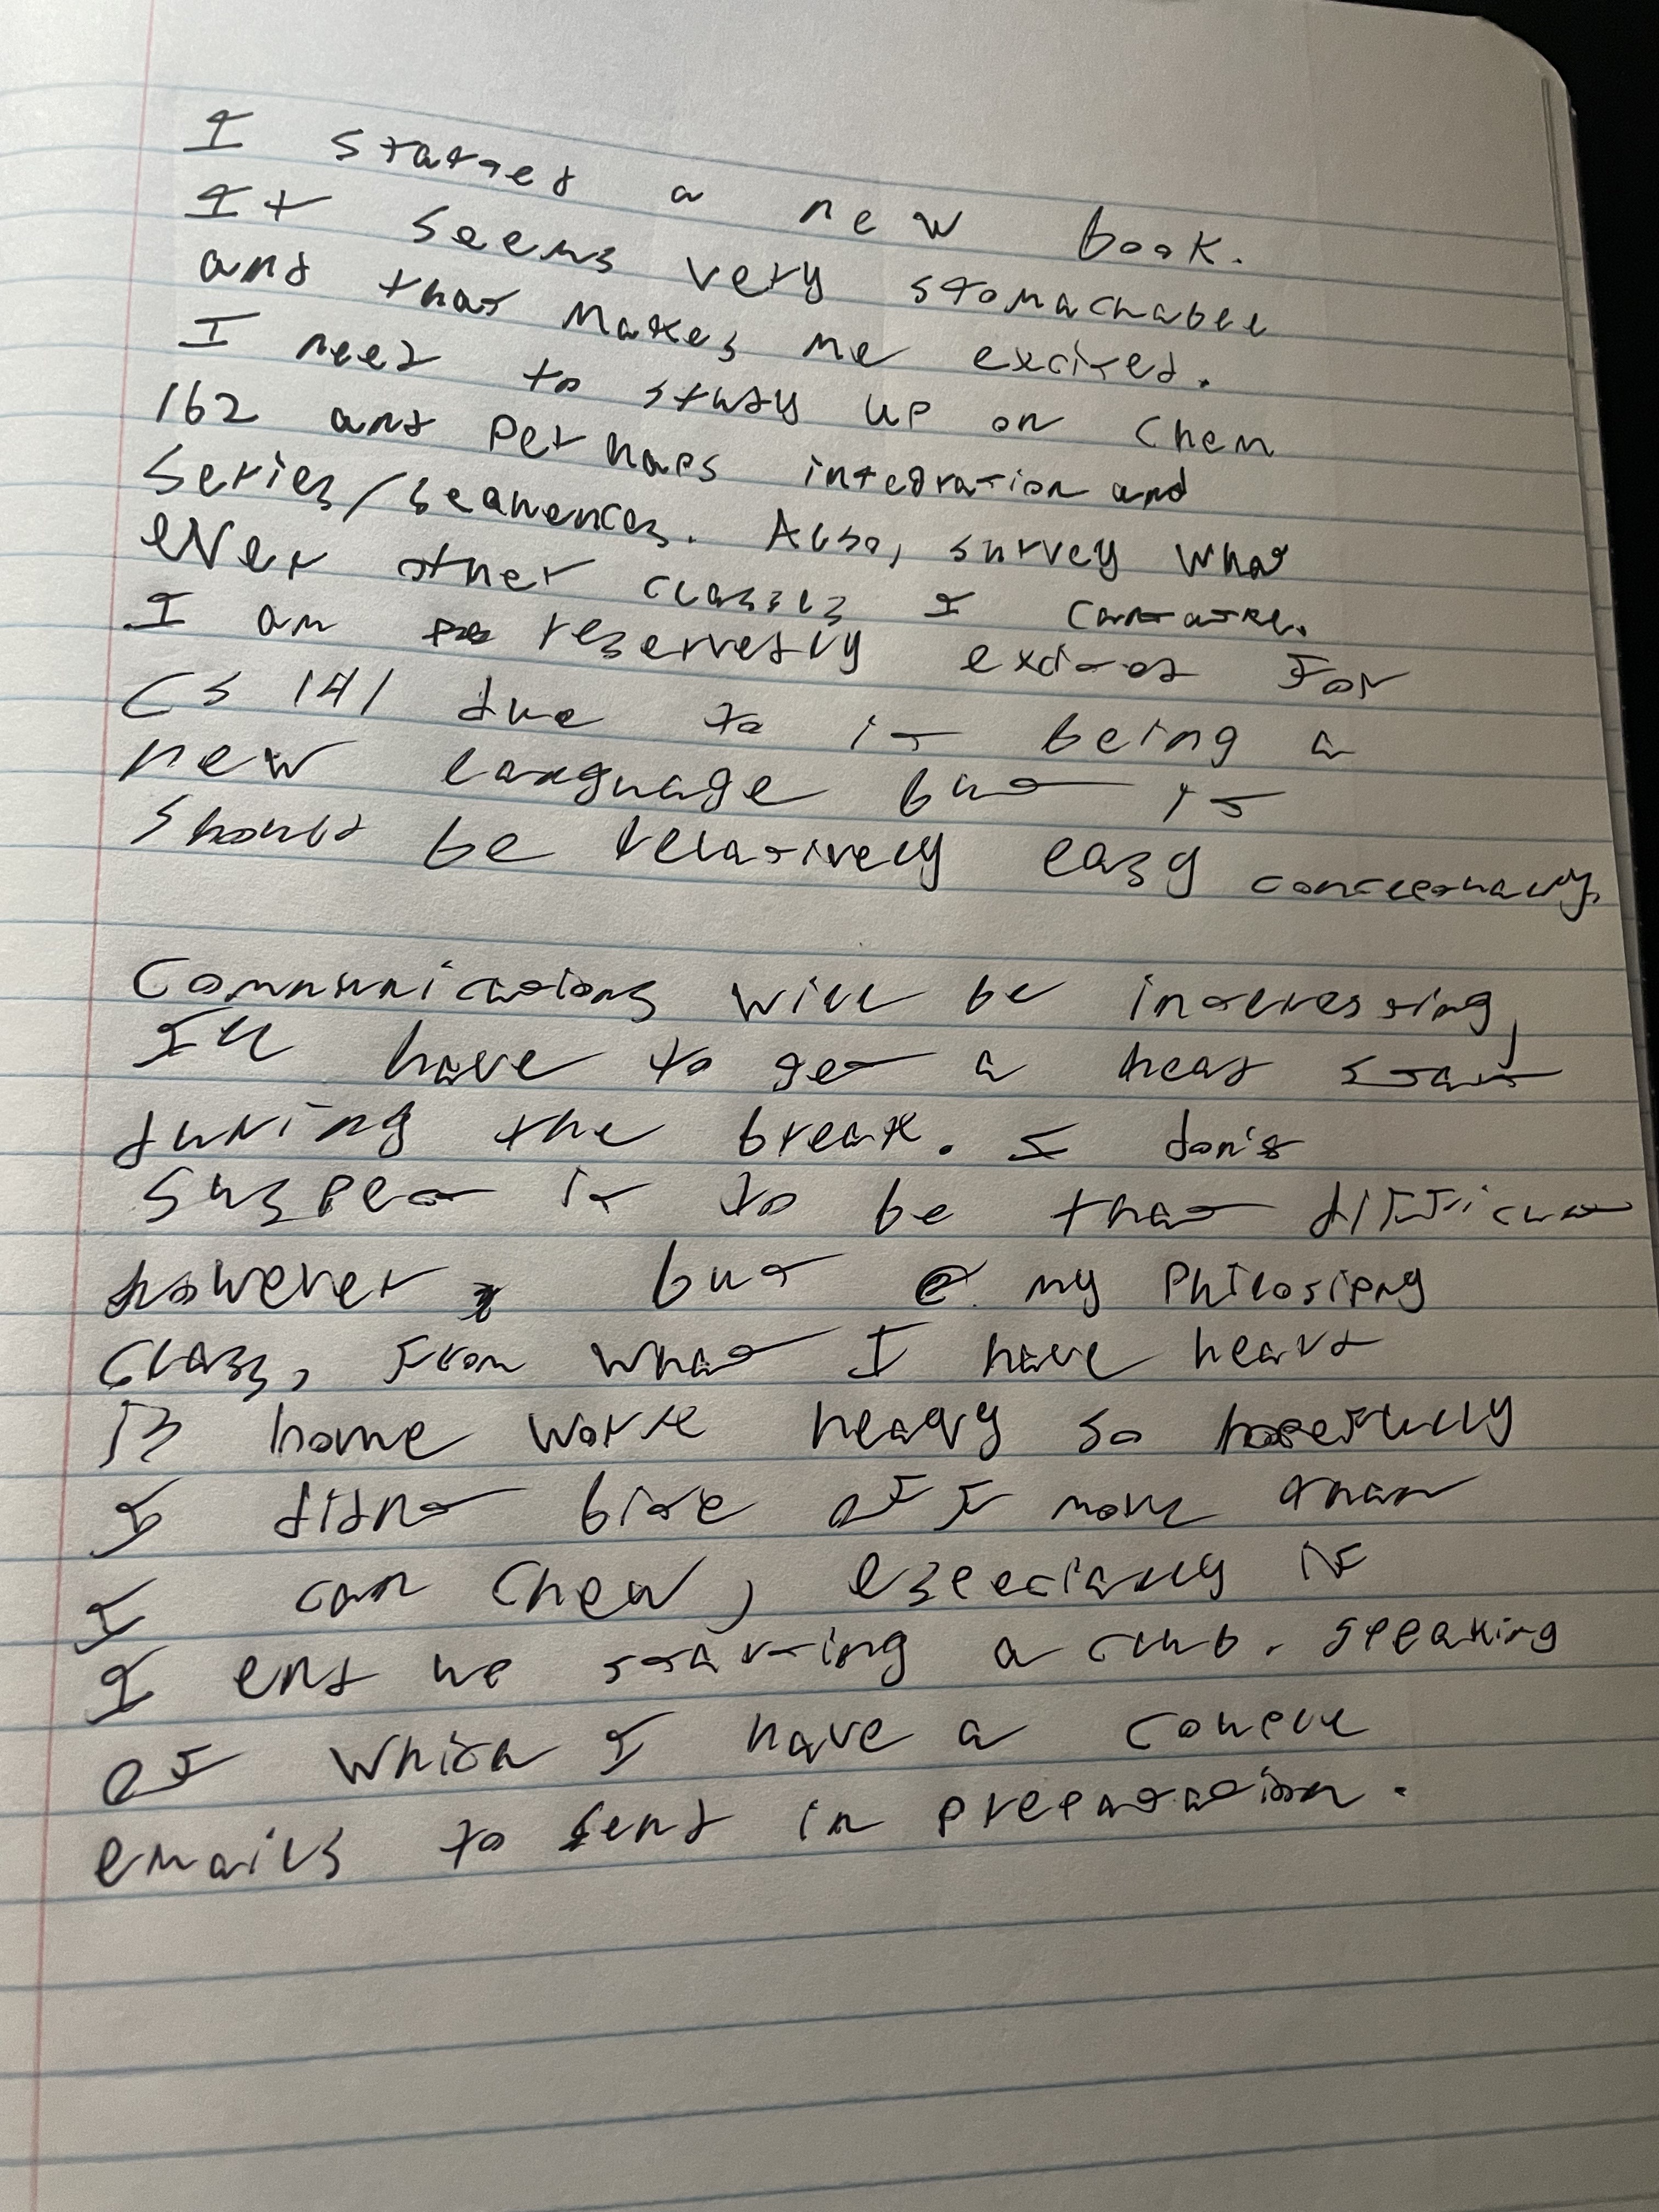 I started a new book.
It seems very stomachable
and that makes me excited.
I need to study up on Chem
162 and perhaps integration and
series/sequences. Also, survey what
ever other classes I can take.
I am reservedly excited for
CS 141 due to it being a
new language but it
should be relatively easy conceptually.
Communications will be interessting,
I'll have to get a head start
during the break. I don't
suspect it to be that difficult
however, but my Philosiphy
class, from what I have heard
is home work heavy so hopefully
I didn't bite off more than
I can chew, especially if
I end up starting a club. Speaking
of which I have a couple
emails to send in preparation.